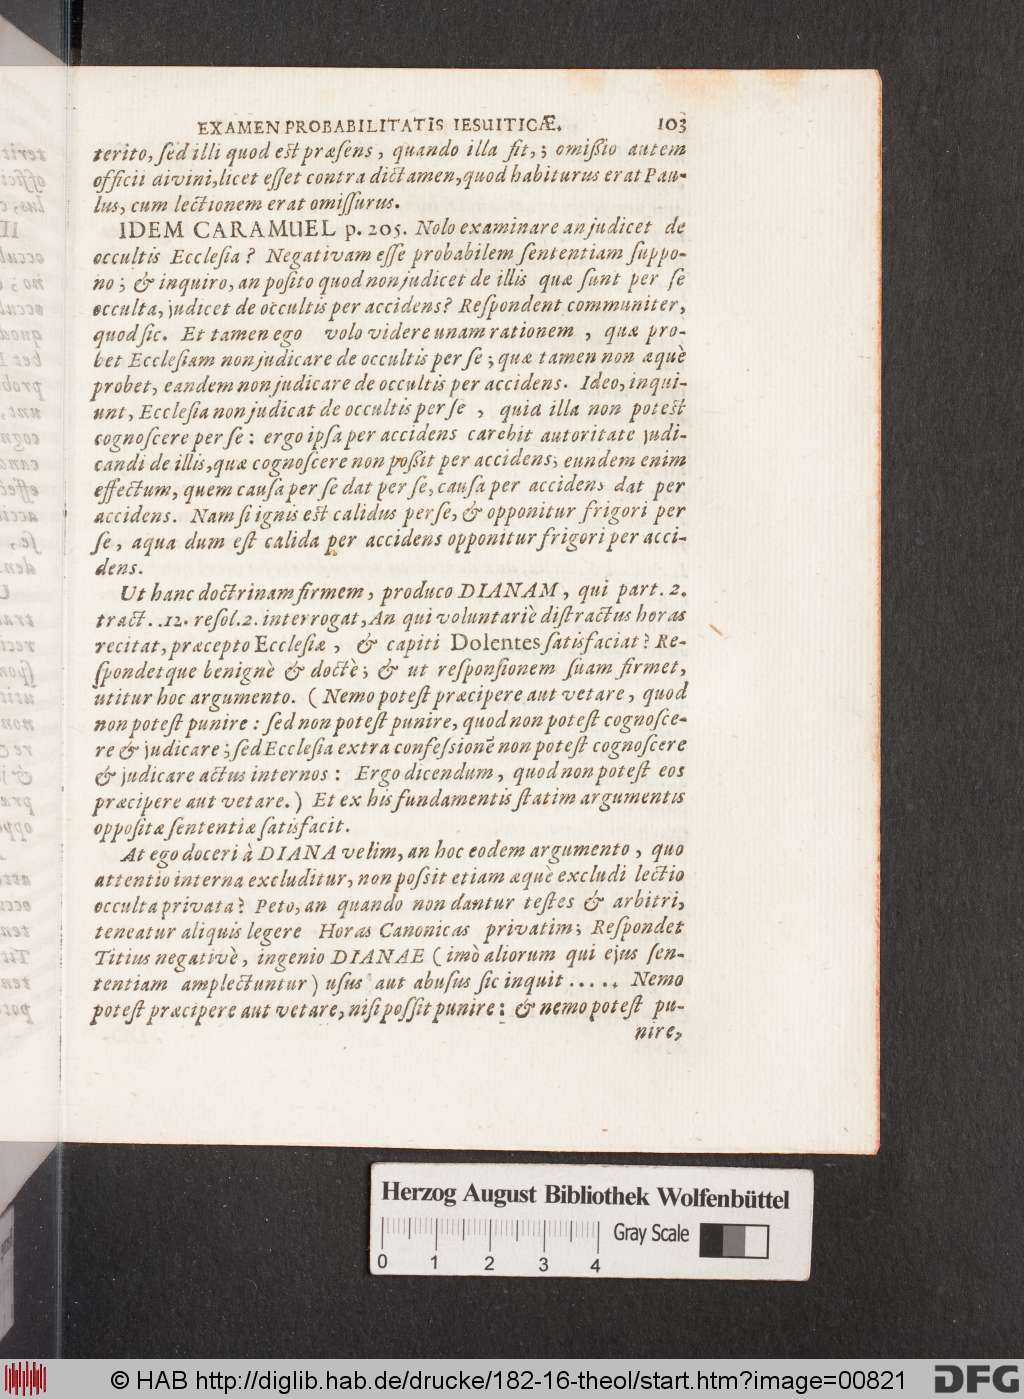 EXAMEN PROBABILITATIS IESUITICÆ. 103
terito, sed illi quod est præsens, quando illa fit,; omißio autem
officii divini, licet esset contra dictamen, quod habiturus erat Pau-
lus, cum lectionem erat omissurus.
IDEM CARAMUEL p. 205. Nolo examinare an judicet de
occultis Ecclesia? Negativam esse probabilem sententiam suppo-
no; & inquiro, an posito quod non judicet de illis quæ sunt per se
occulta, judicet de occultis per accidens? Respondent communiter,
quod sic. Et tamen ego volo videre unam rationem, quæ pro-
bet Ecclesiam non judicare de occultis per se; quæ tamen non æquè
probet, eandem non judicare de occultis per accidens. Ideo, inqui-
unt, Ecclesia non judicat de occultis per se, quia illa non potest
cognoscere per se: ergo ipsa per accidens carebit autoritate judi-
candi de illis, quæ cognoscere non poßit per accidens; eundem enim
effectum, quem causa per se dat per se, causa per accidens dat per
accidens. Nam si ignis est calidus per se, & opponitur frigori per
se, aqua dum est calida per accidens opponitur frigori per acci-
dens.
Ut hanc doctrinam firmem, produco DIANAM, qui part. 2.
tract. .12. resol. 2. interrogat, An qui voluntariè distractus horas
recitat, præcepto Ecclesiæ, & capiti Dolentes satisfaciat? Re-
spondetque benignè & doctè; & ut responsionem suam firmet,
utitur hoc argumento. (Nemo potest præcipere aut vetare, quod
non potest punire: sed non potest punire, quod non potest cognosce-
re & judicare; sed Ecclesia extra confessionē non potest cognoscere
& judicare actus internos: Ergo dicendum, quod non potest eos
præcipere aut vetare.) Et ex his fundamentis statim argumentis
oppositæ sententiæ satisfacit.
At ego doceri à DIANA velim, an hoc eodem argumento, quo
attentio interna excluditur, non possit etiam æquè excludi lectio
occulta privata? Peto, an quando non dantur testes & arbitri,
teneatur aliquis legere Horas Canonicas privatim; Respondet
Titius negativè, ingenio DIANAE (imò aliorum qui ejus sen-
tentiam amplectuntur) usus aut abusus sic inquit ..... Nemo
potest præcipere aut vetare, nisi possit punire: & nemo potest pu-
nire,
Herzog August Bibliothek Wolfenbüttel
Gray Scale
0 1 2 3 4
© HAB http://diglib.hab.de/drucke/182-16-theol/start.htm?image=00821
DFG